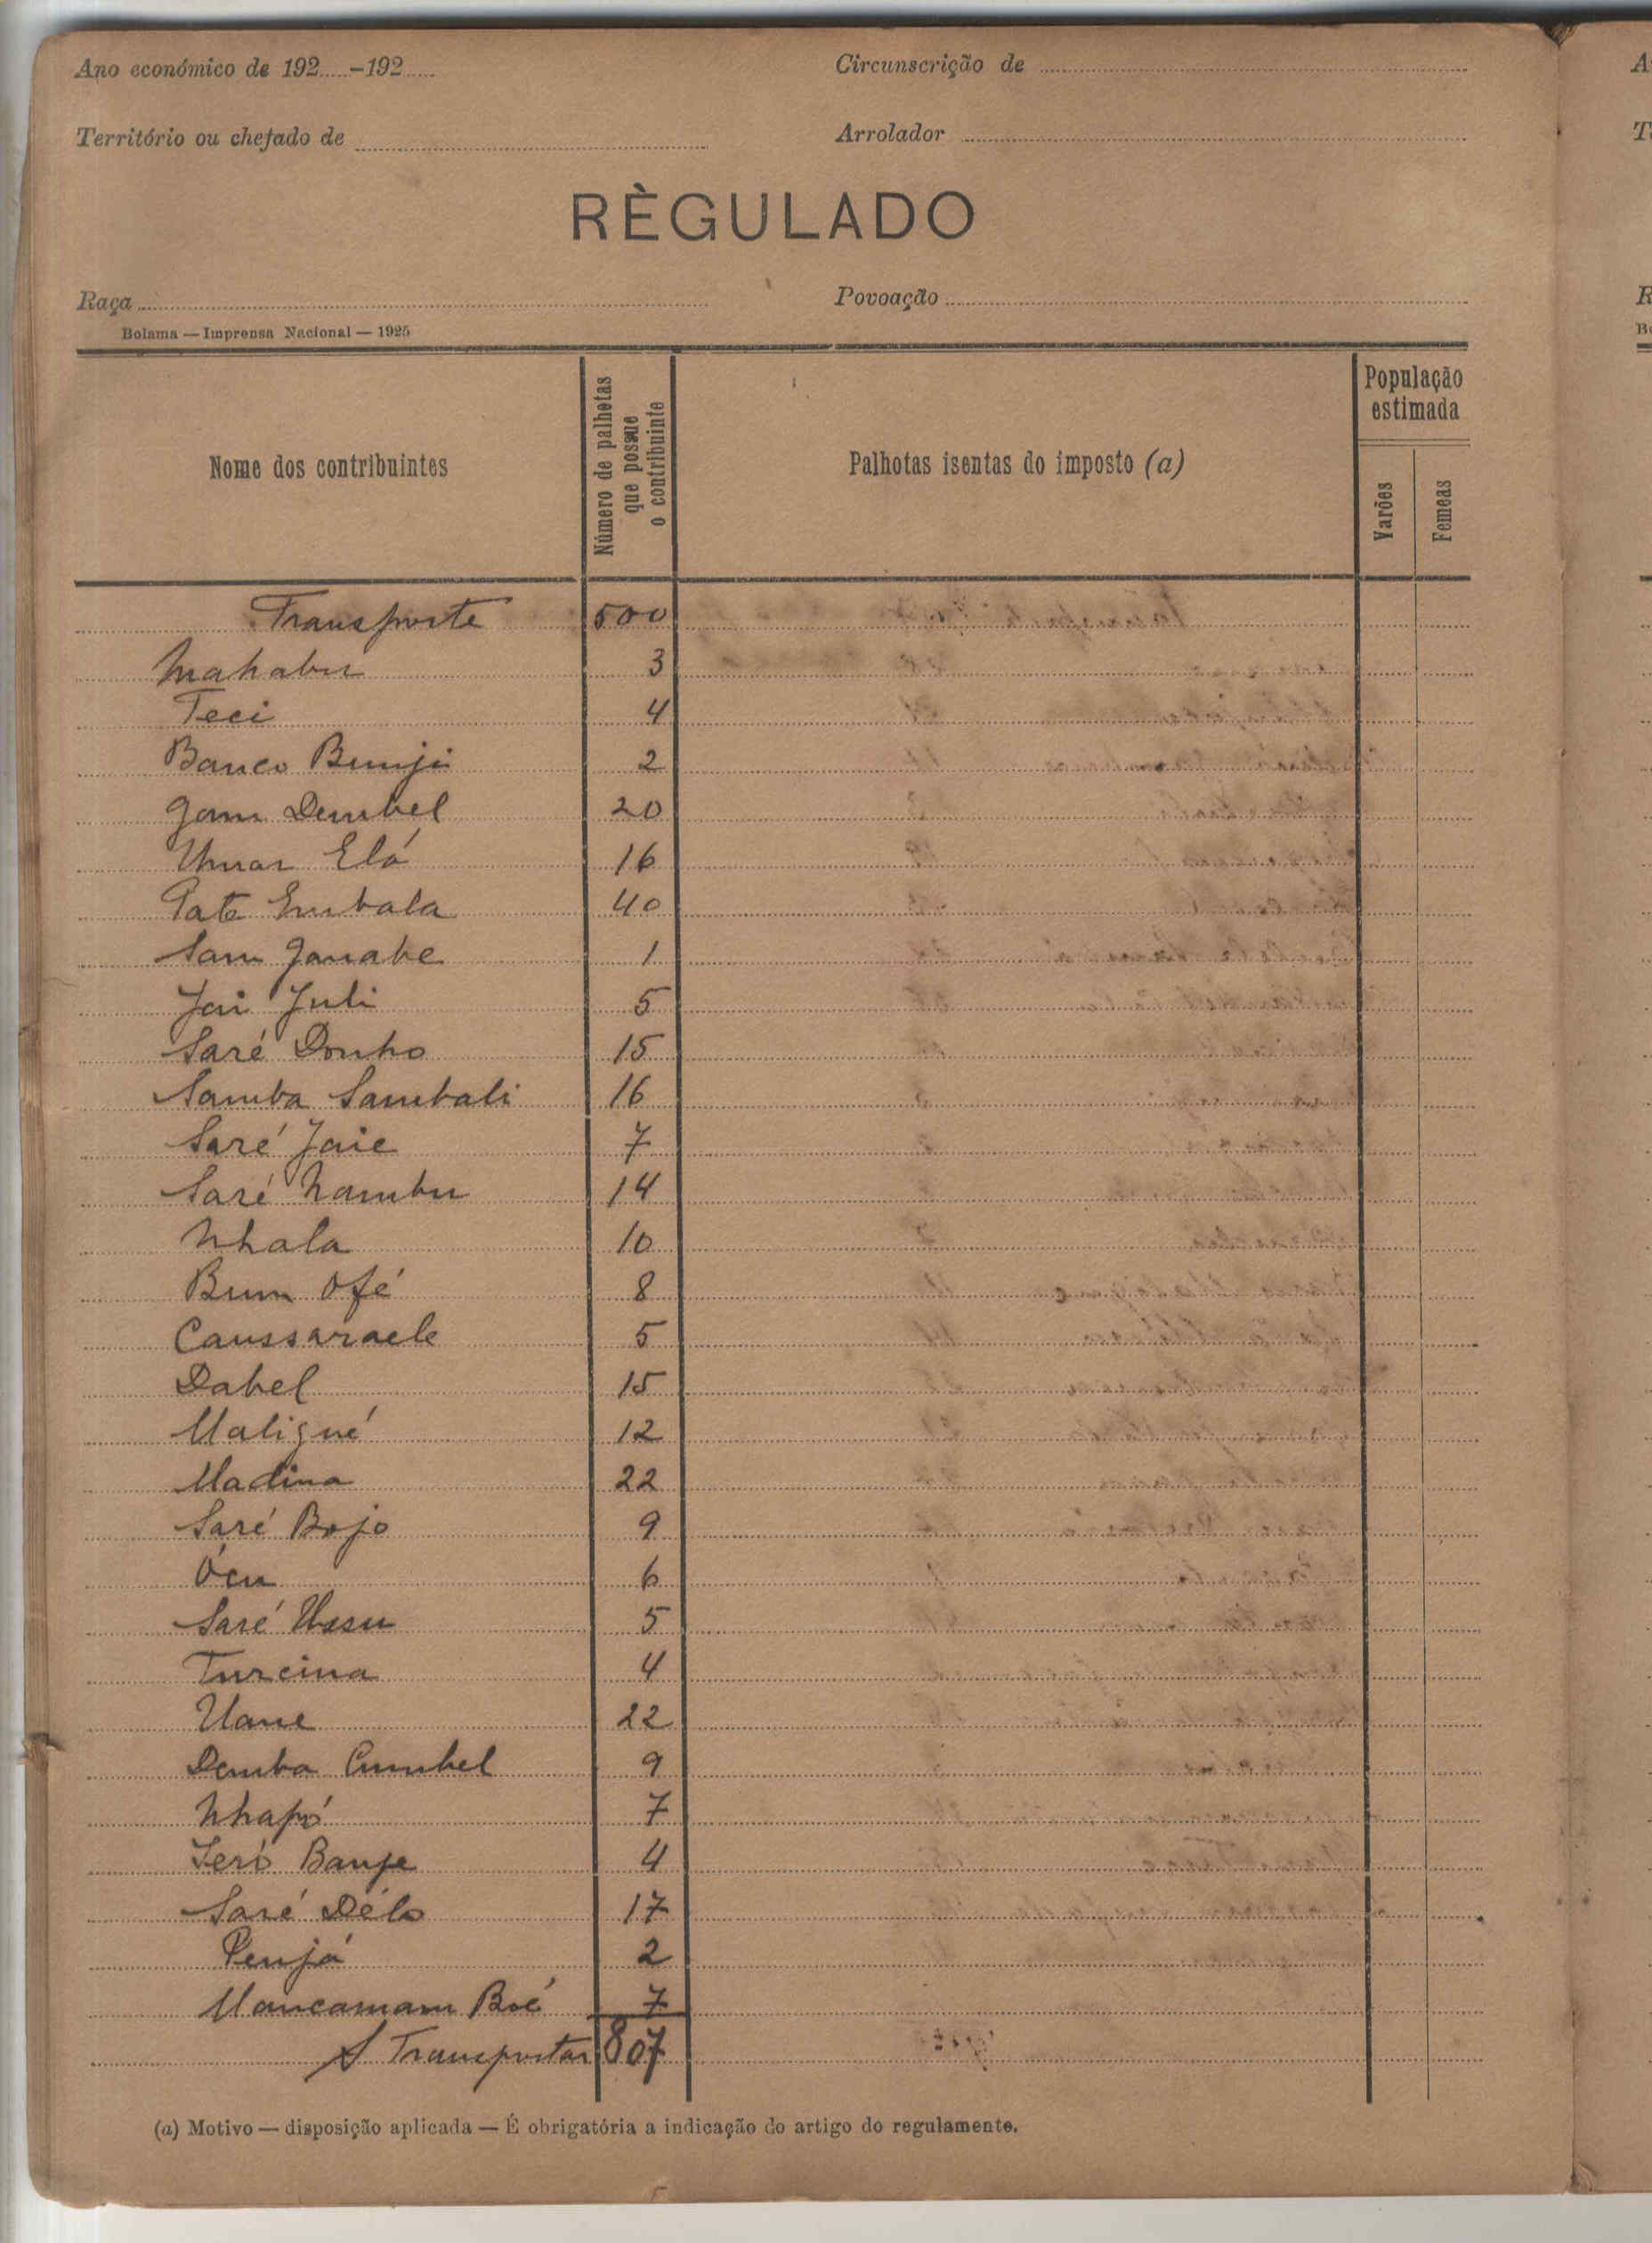 Ano económico de 192.....-192..... Circunscrição de
Território ou chefado de Arrolador
RÈGULADO
Raça Povoação
Bolama — Imprensa Nacional — 1925
Nome dos contribuintes Número de palhotas que possue o contribuinte Palhotas isentas do imposto (a) População estimada Varões Femeas
Transporte 500
Mahabu 3
Teci 4
Banco Bunji 2
Gam Dembel 20
Umar Elá 16
Pate Embala 40
Sam Janabe 1
Jai Juli 5
Saré Donho 15
Samba Sambali 16
Saré Jaie 7
Saré Nambu 14
Nhala 10
Bum Ofé 8
Caussaraele 5
Dabel 15
Maligué 12
Madina 22
Saré Bojo 9
Ócu 6
Saré Ussu 5
Turcina 4
Uane 22
Demba Cumbel 9
Nhapó 7
Jeró Banje 4
Saré Délo 17
Penjá 2
Mancamam Boé 7
A Transportar 807
(a) Motivo — disposição aplicada — É obrigatória a indicação do artigo do regulamento.